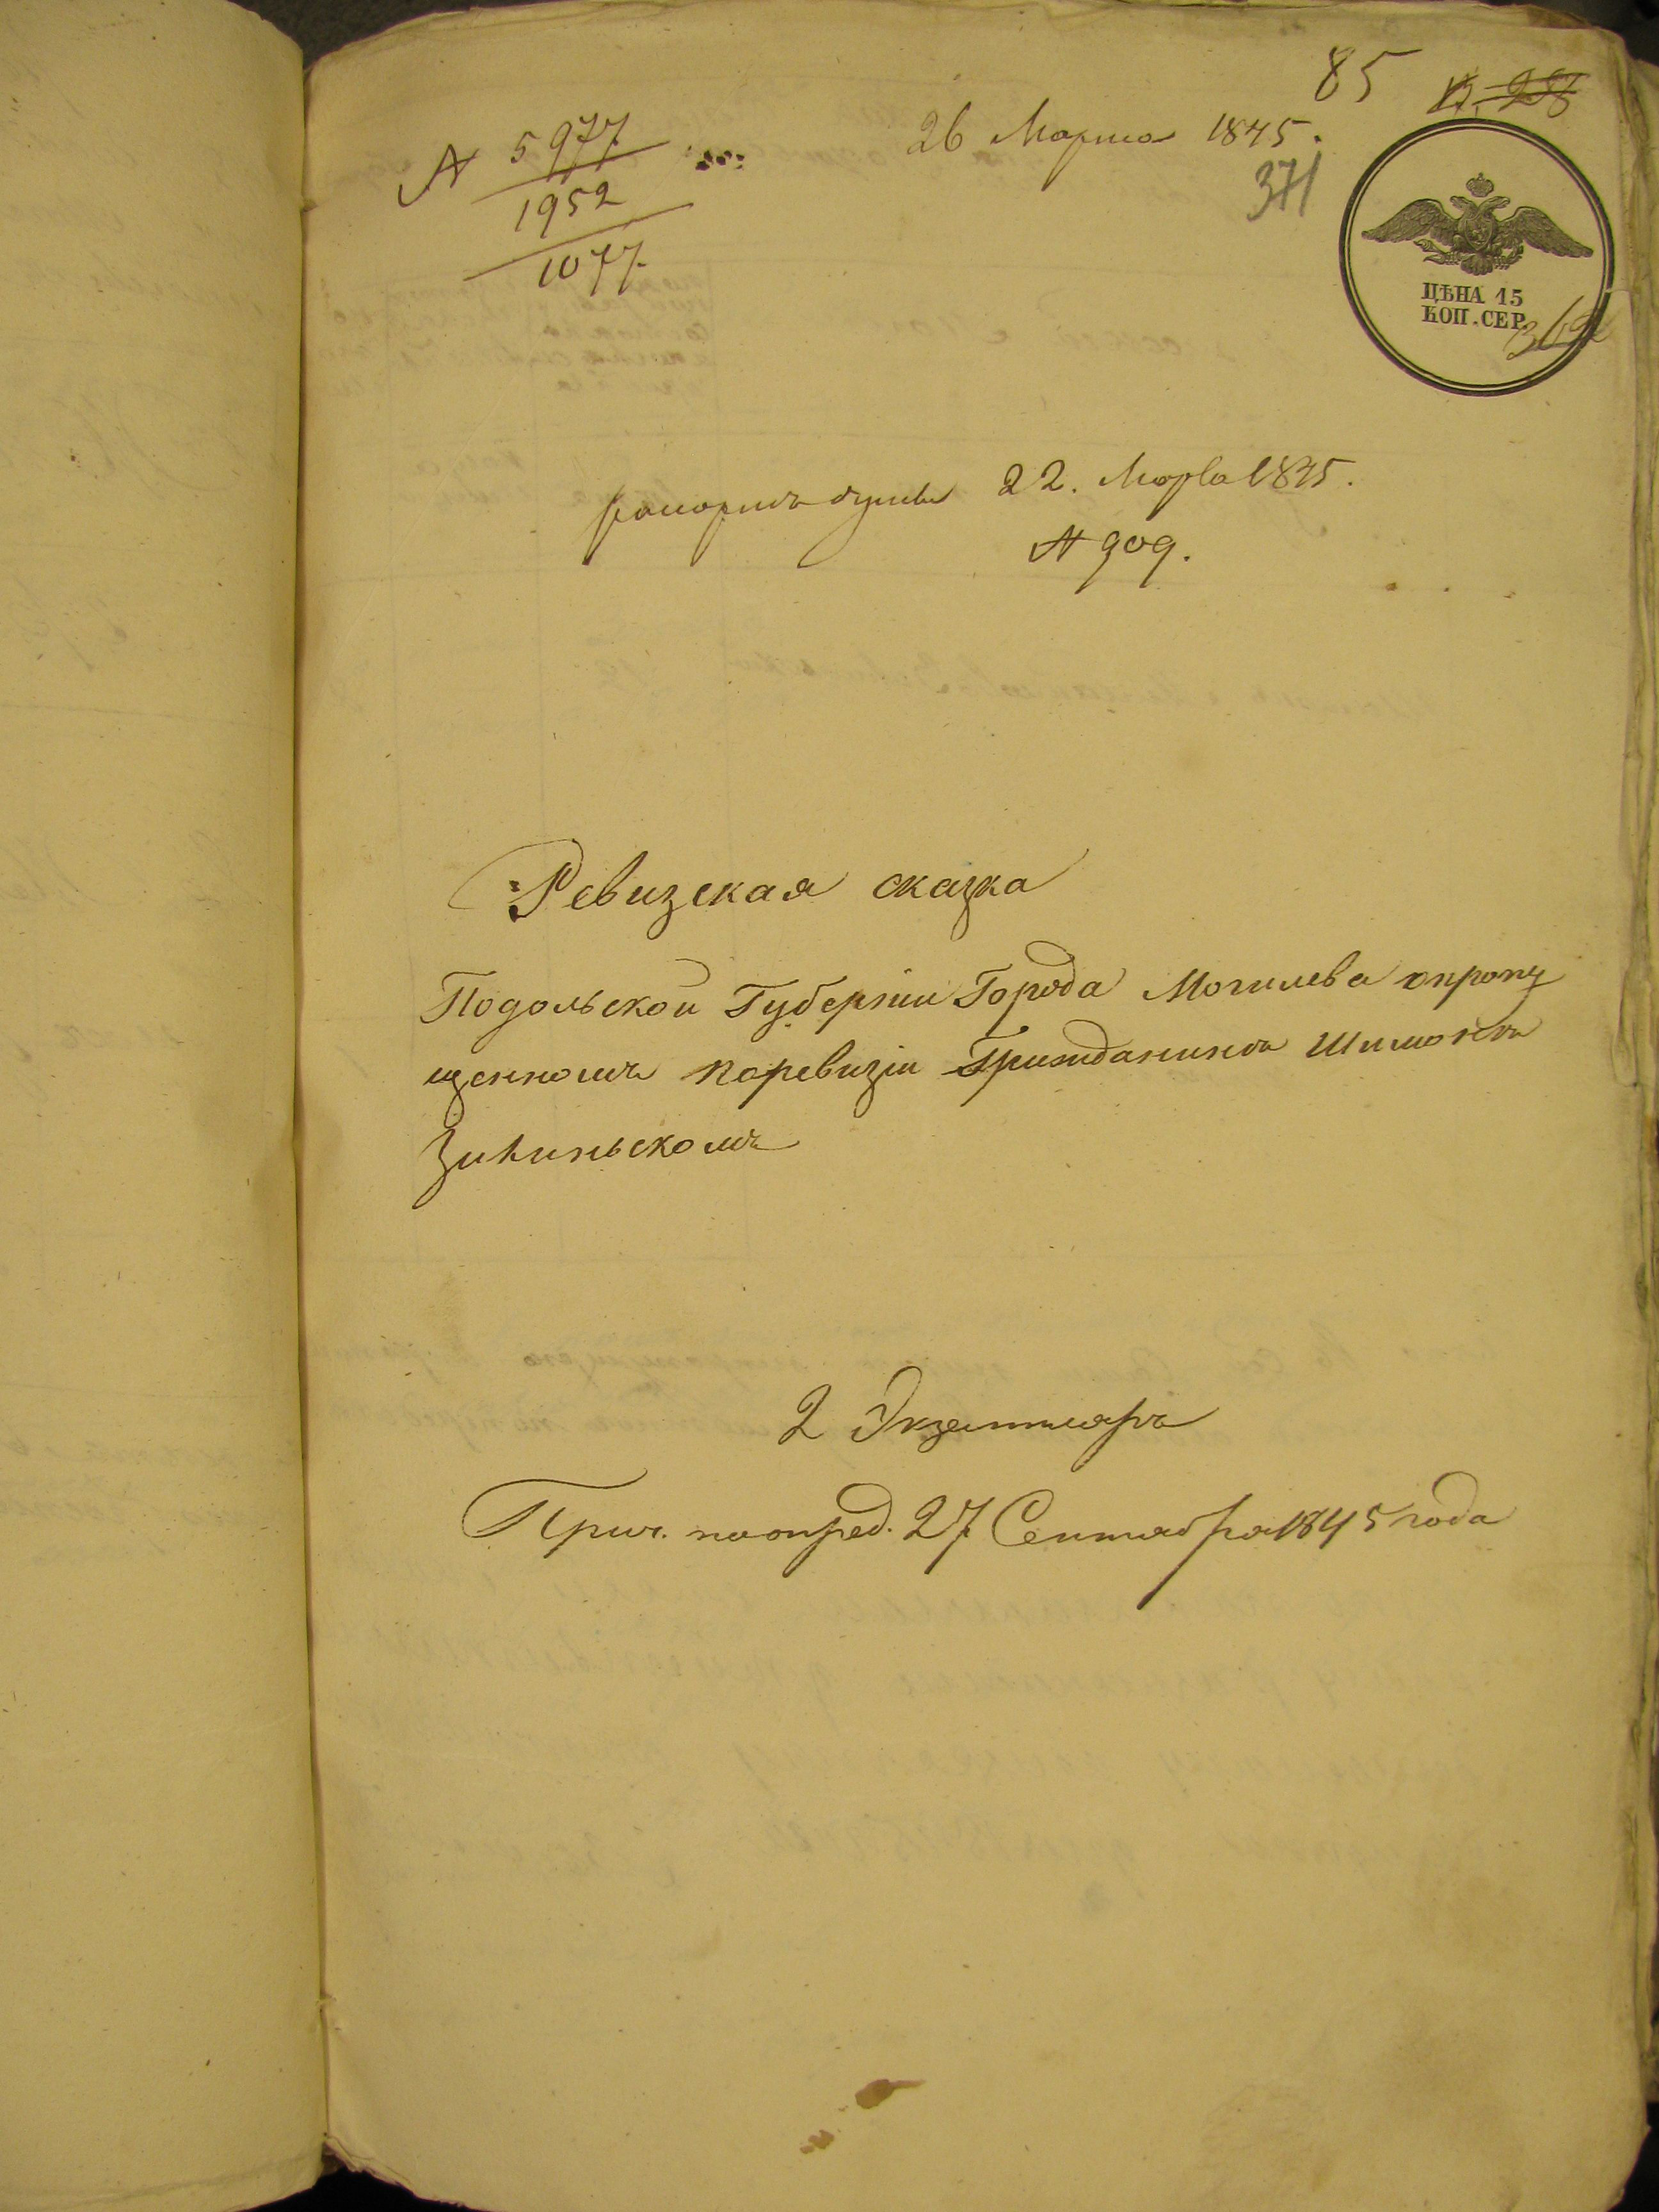 85
№ 28
№ 5977
1952
1077.
26 Марта 1845.
371
ЦѢНА 15
КОП. СЕР.
362
рапортъ думы 22. Марта 1845.
№ 909.
Ревизская сказка
Подольской Губерніи Города Могилева опропу
щенномъ поревизіи Гражданинѣ Шимонѣ
2 Экземпляръ
Прич. поопред. 27 Сентября 1845 года